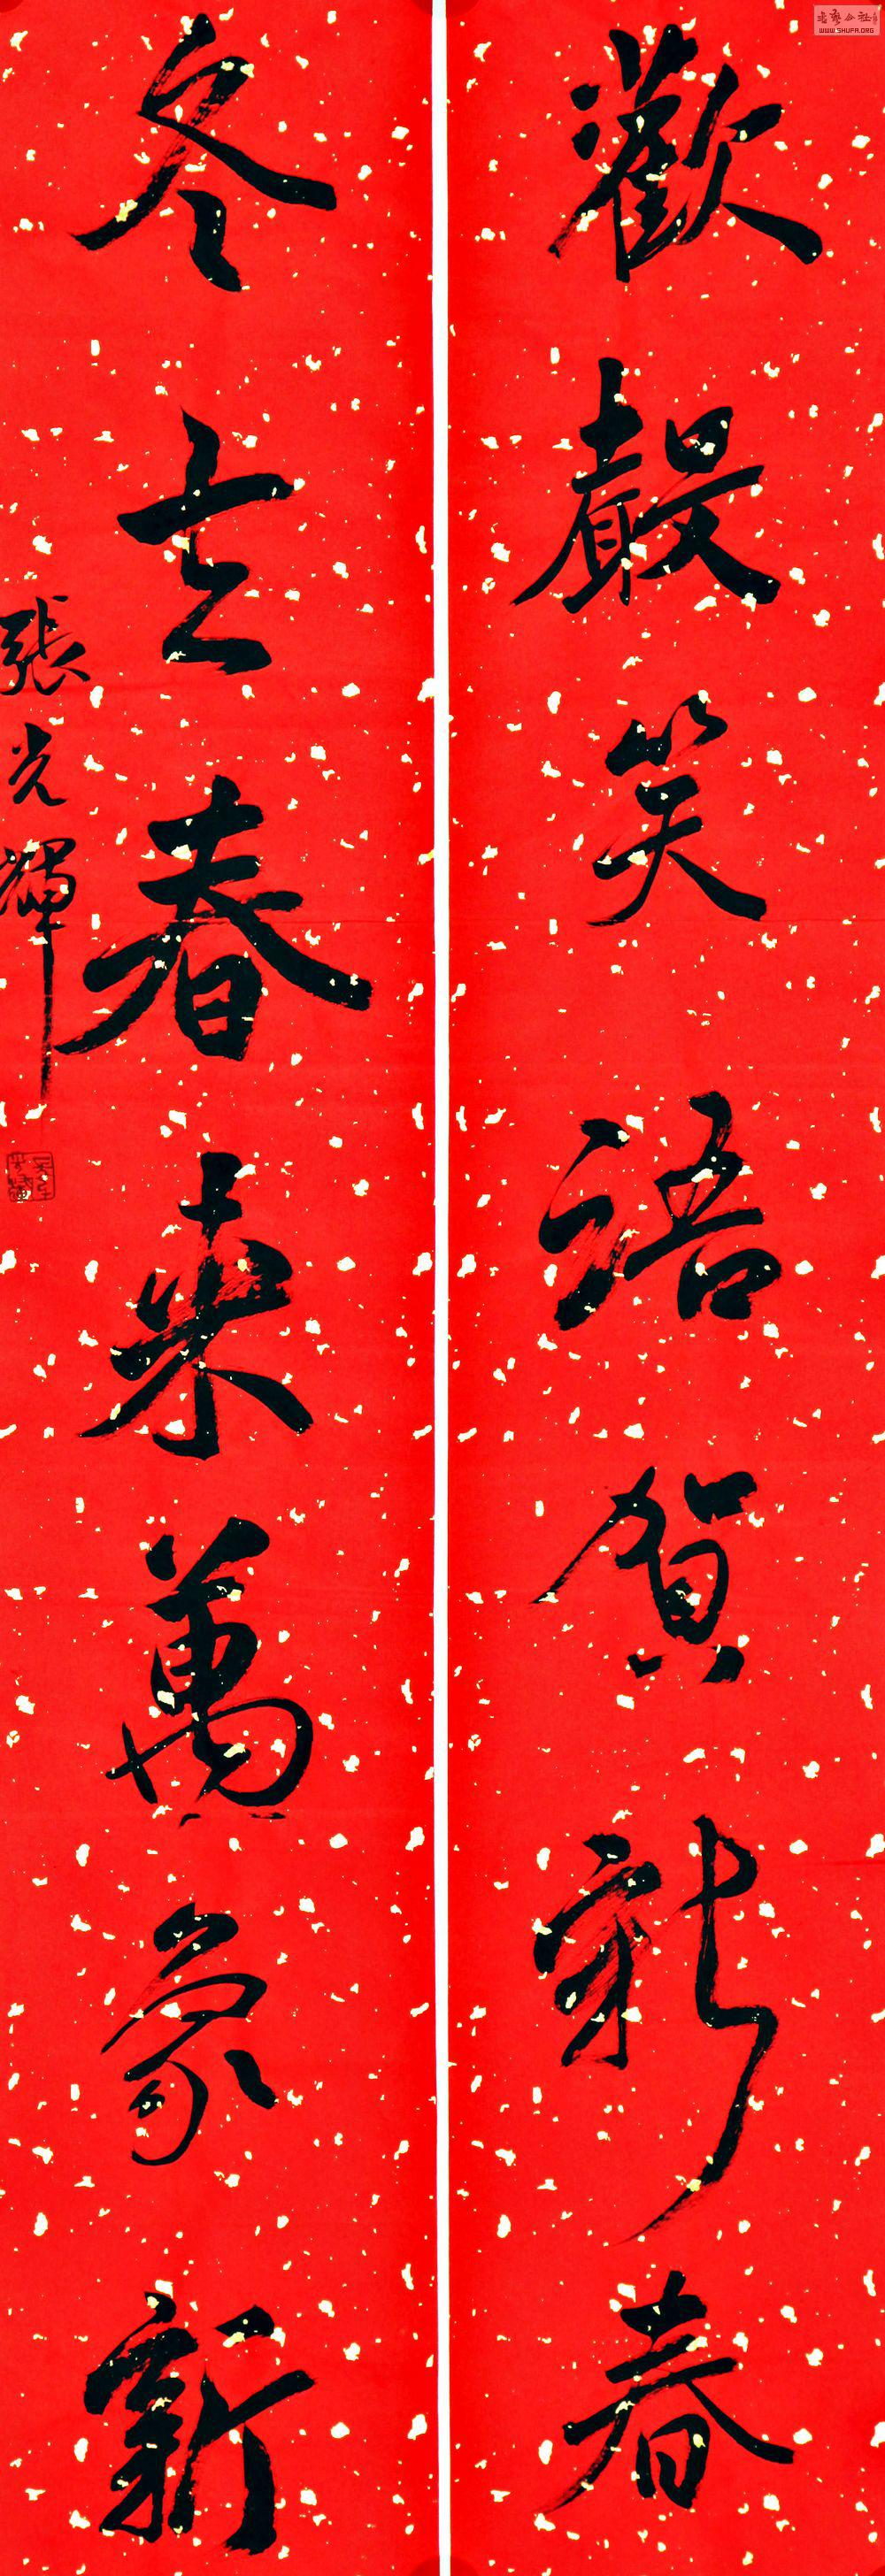 歡聲笑語賀新春
冬去春來萬象新
張光輝
WWW.SHUFA.ORG